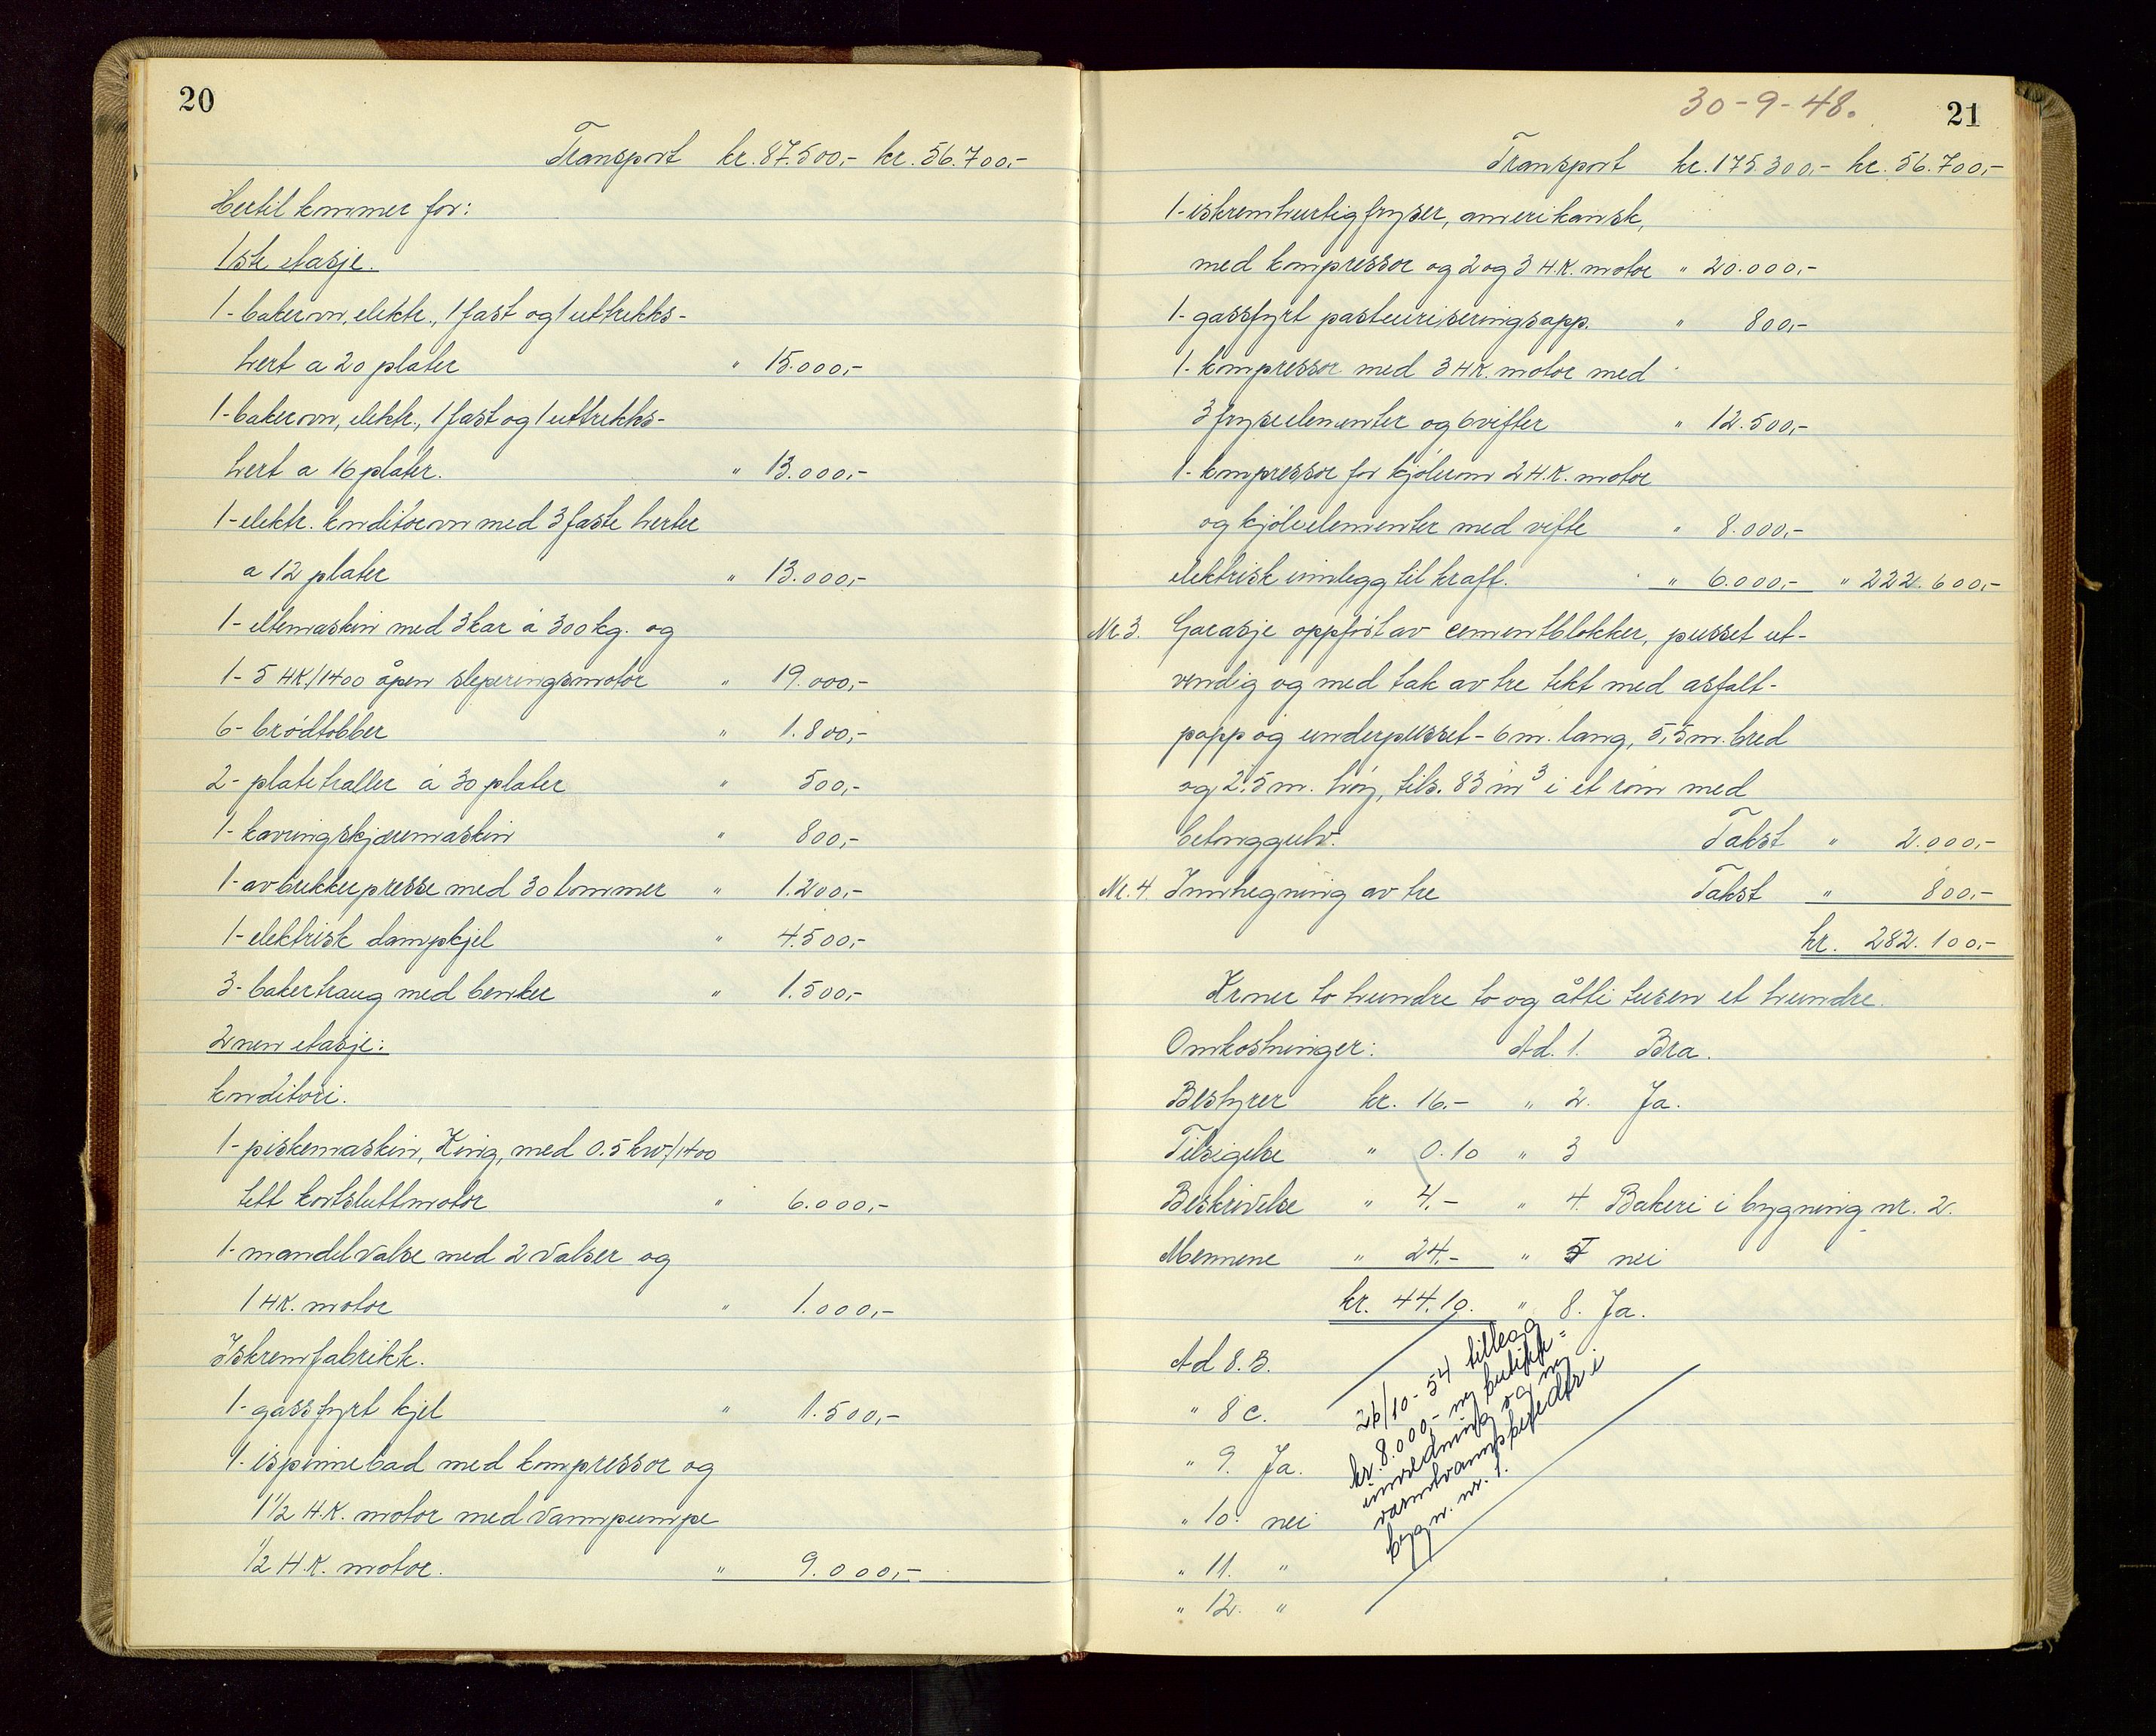 20
Transport kr. 87.500,- kr. 56.700,-
Hertil kommer for:
1ste etasje.
1- bakerovn, elektr., 1 fast og 1 uttrekks-
herd a 20 plater " 15.000,-
1- bakerovn, elektr., 1 fast og 1 uttrekks-
herd a 16 plater. " 13.000,-
1- elektr. konditorovn med 3 faste herder
a 12 plater " 13.000,-
1- eltemaskin med 3 kar á 300 kg. og
1- 5 HK/1400 åpen sleperingsmotor " 19.000,-
6- brødtobber " 1.800,-
2- platetraller á 30 plater " 500,-
1- kavringskjæremaskin " 800,-
1- avbrekkerpresse med 30 lommer " 1.200,-
1- elektrisk dampkjel " 4.500,-
3- bakertraug med benker " 1.500,-
2nen etasje:
konditori.
1- piskemaskin, King, med 0.5 kw/1400
tett kortsluttmotor " 6.000,-
1- mandelvalse med 2 valser og
1 HK. motor " 1.000,-
Iskremfabrikk.
1- gassfyrt kjel " 1.500,-
1- ispinnebad med kompressor og
1 1/2 H.K. motor med vannpumpe
1/2 H.K. motor. " 9.000,-
30-9-48.
21
Transport kr. 175.300,- kr. 56.700,-
1- iskremhurtigfryser, amerikansk,
med kompressor og 2 og 3 H.K. motor " 20.000,-
1- gassfyrt pasteuriseringsapp. " 800,-
1- kompressor med 3 HK. motor med
3 fryseelementer og 6 vifter " 12.500,-
1- kompressor for kjølerom 2 H.K. motor
og kjøleelementer med vifte " 8.000,-
elektrisk innlegg til kraft. " 6.000,- " 222.600,-
Nr 3. Garasje oppført av cementblokker, pusset ut-
vendig og med tak av tre tekt med asfalt-
papp og underpusset - 6 m. lang, 5,5 m. bred
og 2.5 m. høy, tils. 83 m³ i et rom med
betonggulv. Takst " 2.000,-
Nr. 4. Innhegning av tre Takst " 800,-
kr. 282.100,-
Kroner to hundre to og åtti tusen et hundre.
Omkostninger: Ad. 1. Bra.
Bestyrer kr. 16.- " 2. Ja.
Tilsigelse " 0.10 " 3
Beskrivelse " 4.- " 4. Bakeri i bygning nr. 2.
Mennene " 24.- " 5 nei
kr. 44.10. " 8. Ja.
Ad 8. B.
" 8 c.
" 9. Ja.
" 10. nei
" 11. "
" 12. "
26/10-54 tillegg
kr. 8.000,- ny butikk-
innredning og ny
varmtvannsbereder i
bygn. nr. 1.